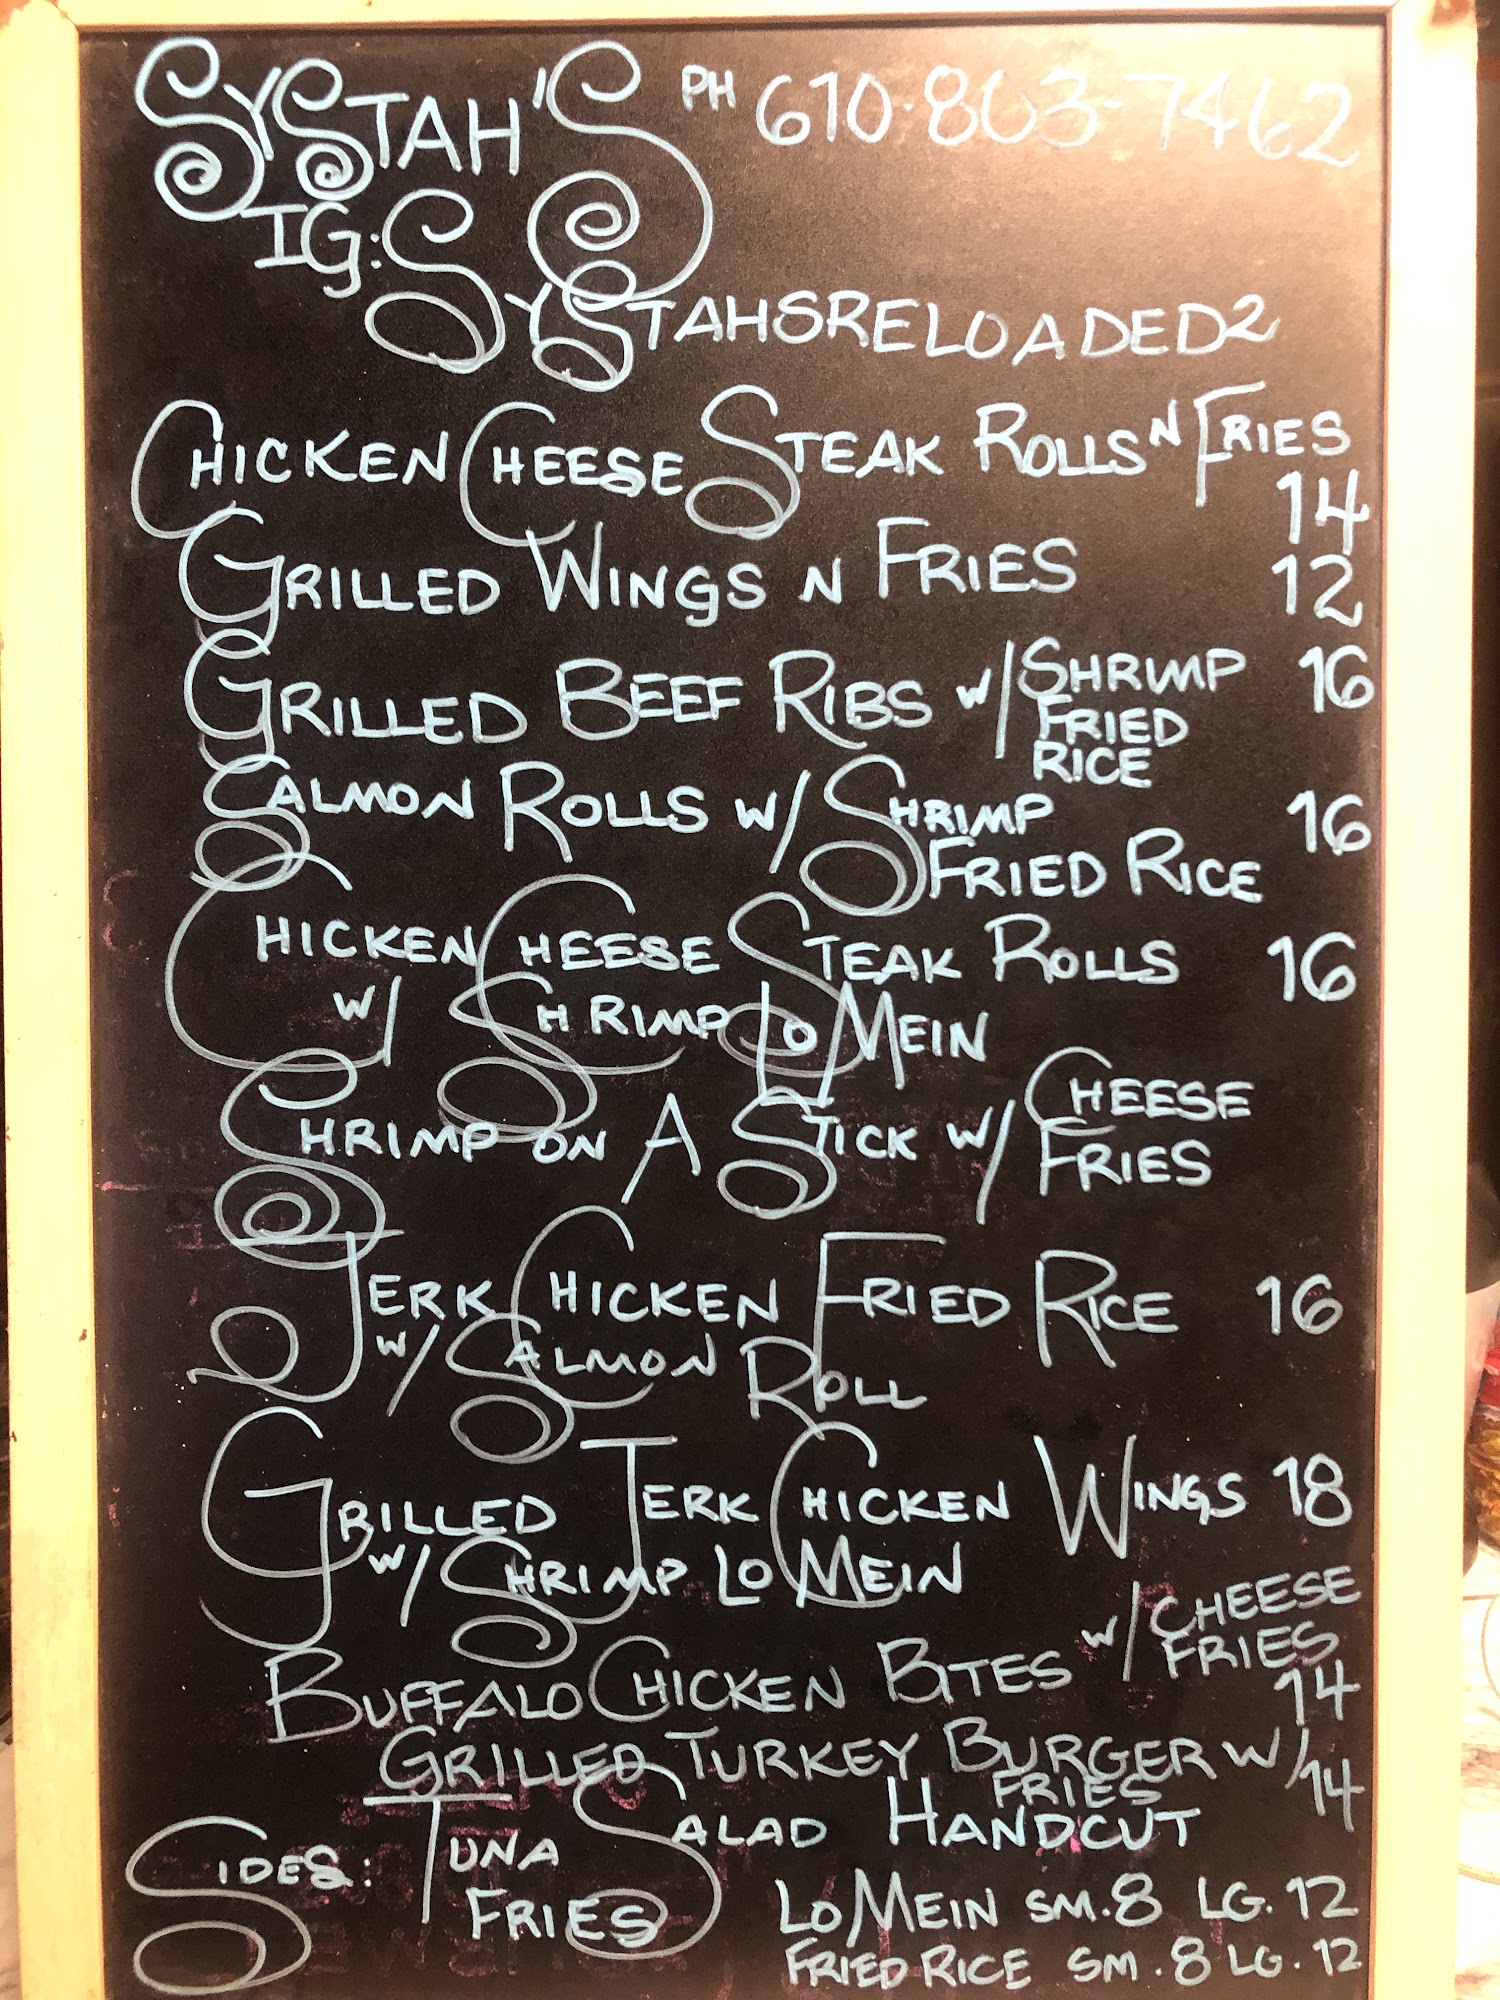 SYSTAH'S PH 610-803-7462
IG: SYSTAHSRELOADED2
CHICKEN CHEESE STEAK ROLLS N FRIES
14
GRILLED WINGS N FRIES 12
GRILLED BEEF RIBS W/ SHRIMP 16
FRIED
RICE
SALMON ROLLS W/ SHRIMP 16
FRIED RICE
CHICKEN CHEESE STEAK ROLLS 16
W/ SHRIMP LO MEIN
SHRIMP ON A STICK W/ CHEESE
FRIES
JERK CHICKEN FRIED RICE 16
W/ SALMON ROLL
GRILLED JERK CHICKEN WINGS 18
W/ SHRIMP LO MEIN
BUFFALO CHICKEN BITES W/ CHEESE
FRIES
14
GRILLED TURKEY BURGER W/
FRIES 14
SIDES: TUNA SALAD HANDCUT
FRIES LO MEIN SM. 8 LG. 12
FRIED RICE SM. 8 LG. 12